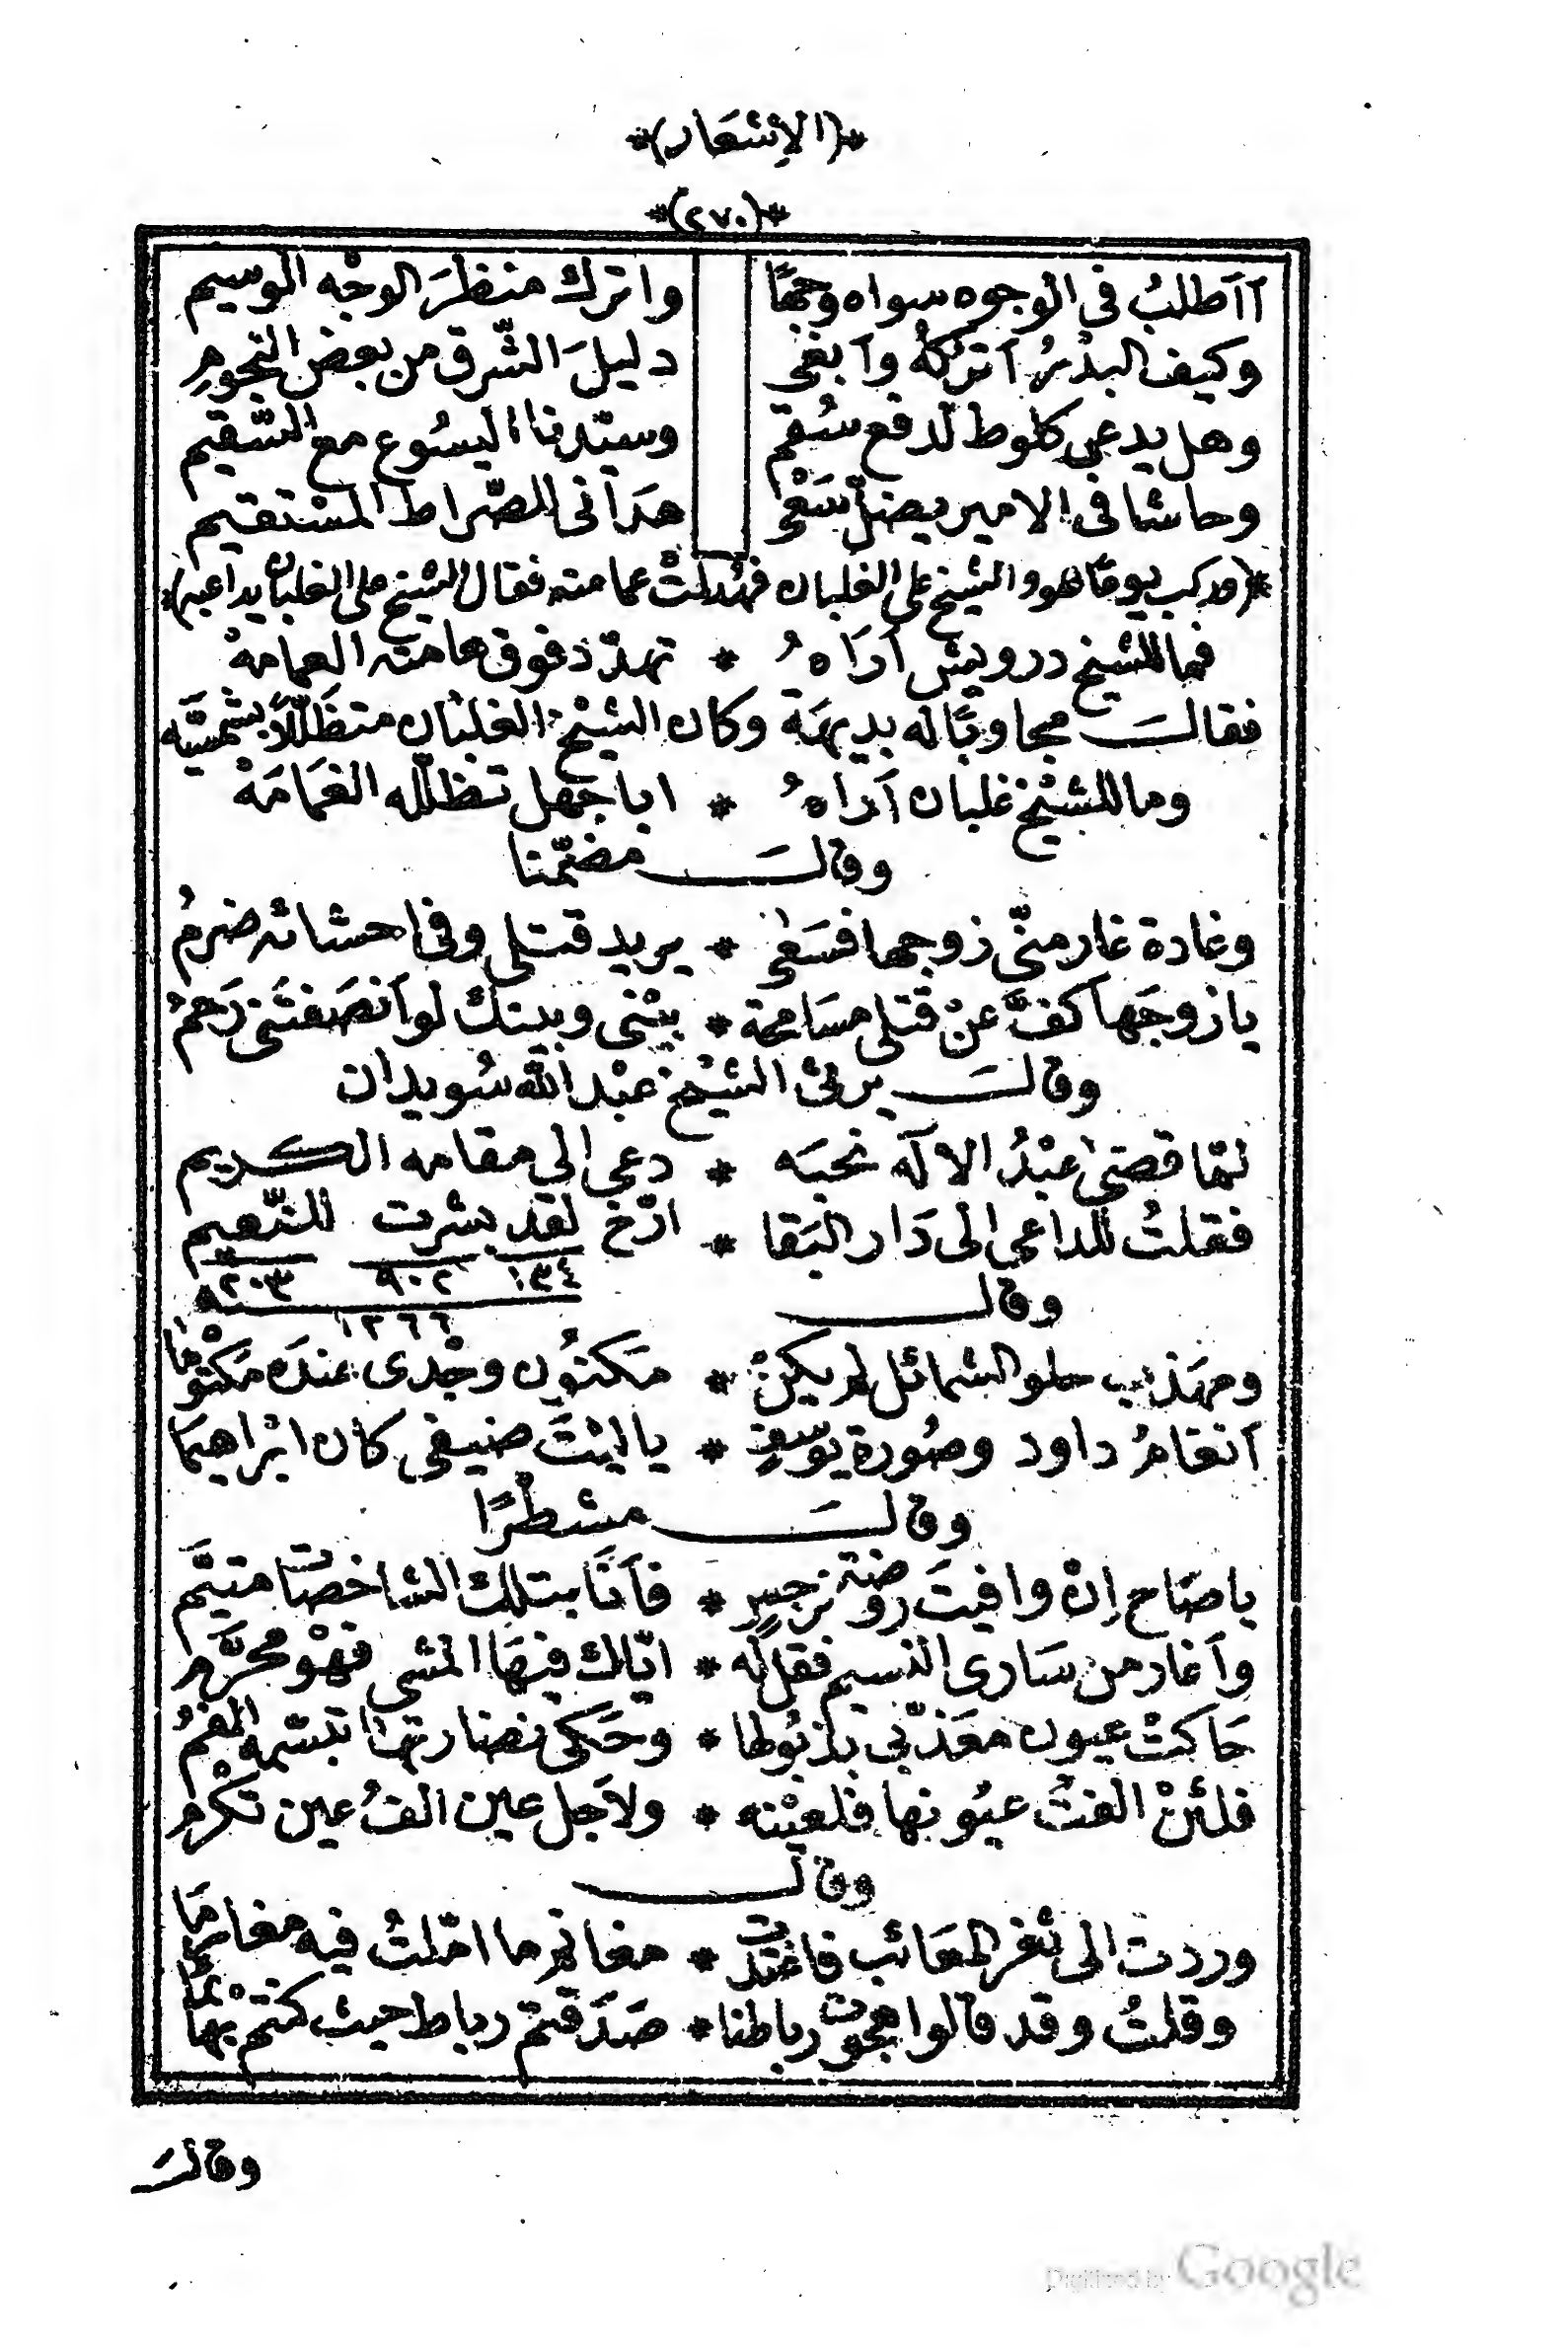 *(الاشعار)*
*(٢٧٠)*
أأطلبُ في الوجوه سواه وجهًا واترك منظرَ الوجْه الوسيم
وكيف البدْرُ أتركهُ وأبغي دليلَ الشّرق من بعض النجومِ
وهل يدعى كلوط لدفع سُقم وسيّدنا اليسُوع مع السّقيم
وحاشا في الامير يضلّ سَعْى هَدَانى للصّراط المسْتقيم
*(وركب يومًا هو والشيخ على الغلبان فهُدلتْ عمامته فقال الشيخ على الغلبان يداعبه)*
فما للشيخ درويش أرَاهُ * تهدّد فوق هامته العمامهْ
فقالَ مجاوبًا له بديهَة وكان الشيْخ الغلبان متظَلّلاً بشمسيَّه
وما للشيْخ غلبان أراهُ * ابا جهل تظلّله الغمَامَهْ
وقالَ مضمّنا
وغادة غار منّى زوجها فسَعٰى * يريد قتلى وفى احشائه ضرمُ
يا زوجَها كفَّ عنْ قتلى مسَامحة * بيْنى وبينك لو أنصَفتَنى رَحمُ
وقالَ يرثى الشيْخ عبْد الله سُويدان
لمّا قضىٰ عبْدُ الالٓه نحبَه * دعى الى مقامه الكريم
فقلتُ للداعى الى دَار البَقا * ارّخ لقد بشرت للنّعيم
١٣٤ ٩٠٢ ٢٠٣
وقال
١٢٦٦
ومهَذب حلو الشمائل لم يكنْ * مَكنُون وجْدى عندَه مَكتوْمَا
أنغامُ داود وصُورة يوسفٍ * يا ليْتَ ضيفى كان ابْراهيمَا
وقالَ مشطرًا
يا صَاح اِنْ وافيتَ رَوضة نرجسٍ * فأنَا بتلك الشاخصَات متيَّم
وأغار من سَارى النسيم فقل له * ايّاك فيهَا المشى فهْو محرَّم
حَاكتْ عيون معَذّبى بذبُولها * وحَكى نضارتهَا تبسّمه الفمُ
فلئنْ الفتُ عيُونها فلعيْنه * ولأجل عين الفُ عين تكْرم
وقال
وردت الى ثغر المعَائب فاغتدت * مغانم ما امّلتُ فيه مغارمَا
وقلتُ وقد قالوا هجوت رباطنا * صَدَقتمْ رباط حيث كنتمْ بهَائما
وقالَ
Digitized by Google